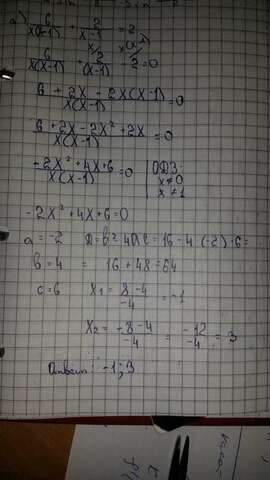 a) 6/x(x-1) + 2/x-1 = 2
6/x(x-1) + 2/(x-1) - 2 = 0
6 + 2x - 2x(x-1)/x(x-1) = 0
6 + 2x - 2x² + 2x/x(x-1) = 0
-2x² + 4x + 6/x(x-1) = 0
ОДЗ:
x ≠ 0
x ≠ 1
-2x² + 4x + 6 = 0
a = -2 D = b² - 4ac = 16 - 4·(-2)·6 =
b = 4 = 16 + 48 = 64
c = 6 x₁ = 8-4/-4 = -1
x₂ = -8-4/-4 = -12/-4 = 3
Ответ: -1; 3